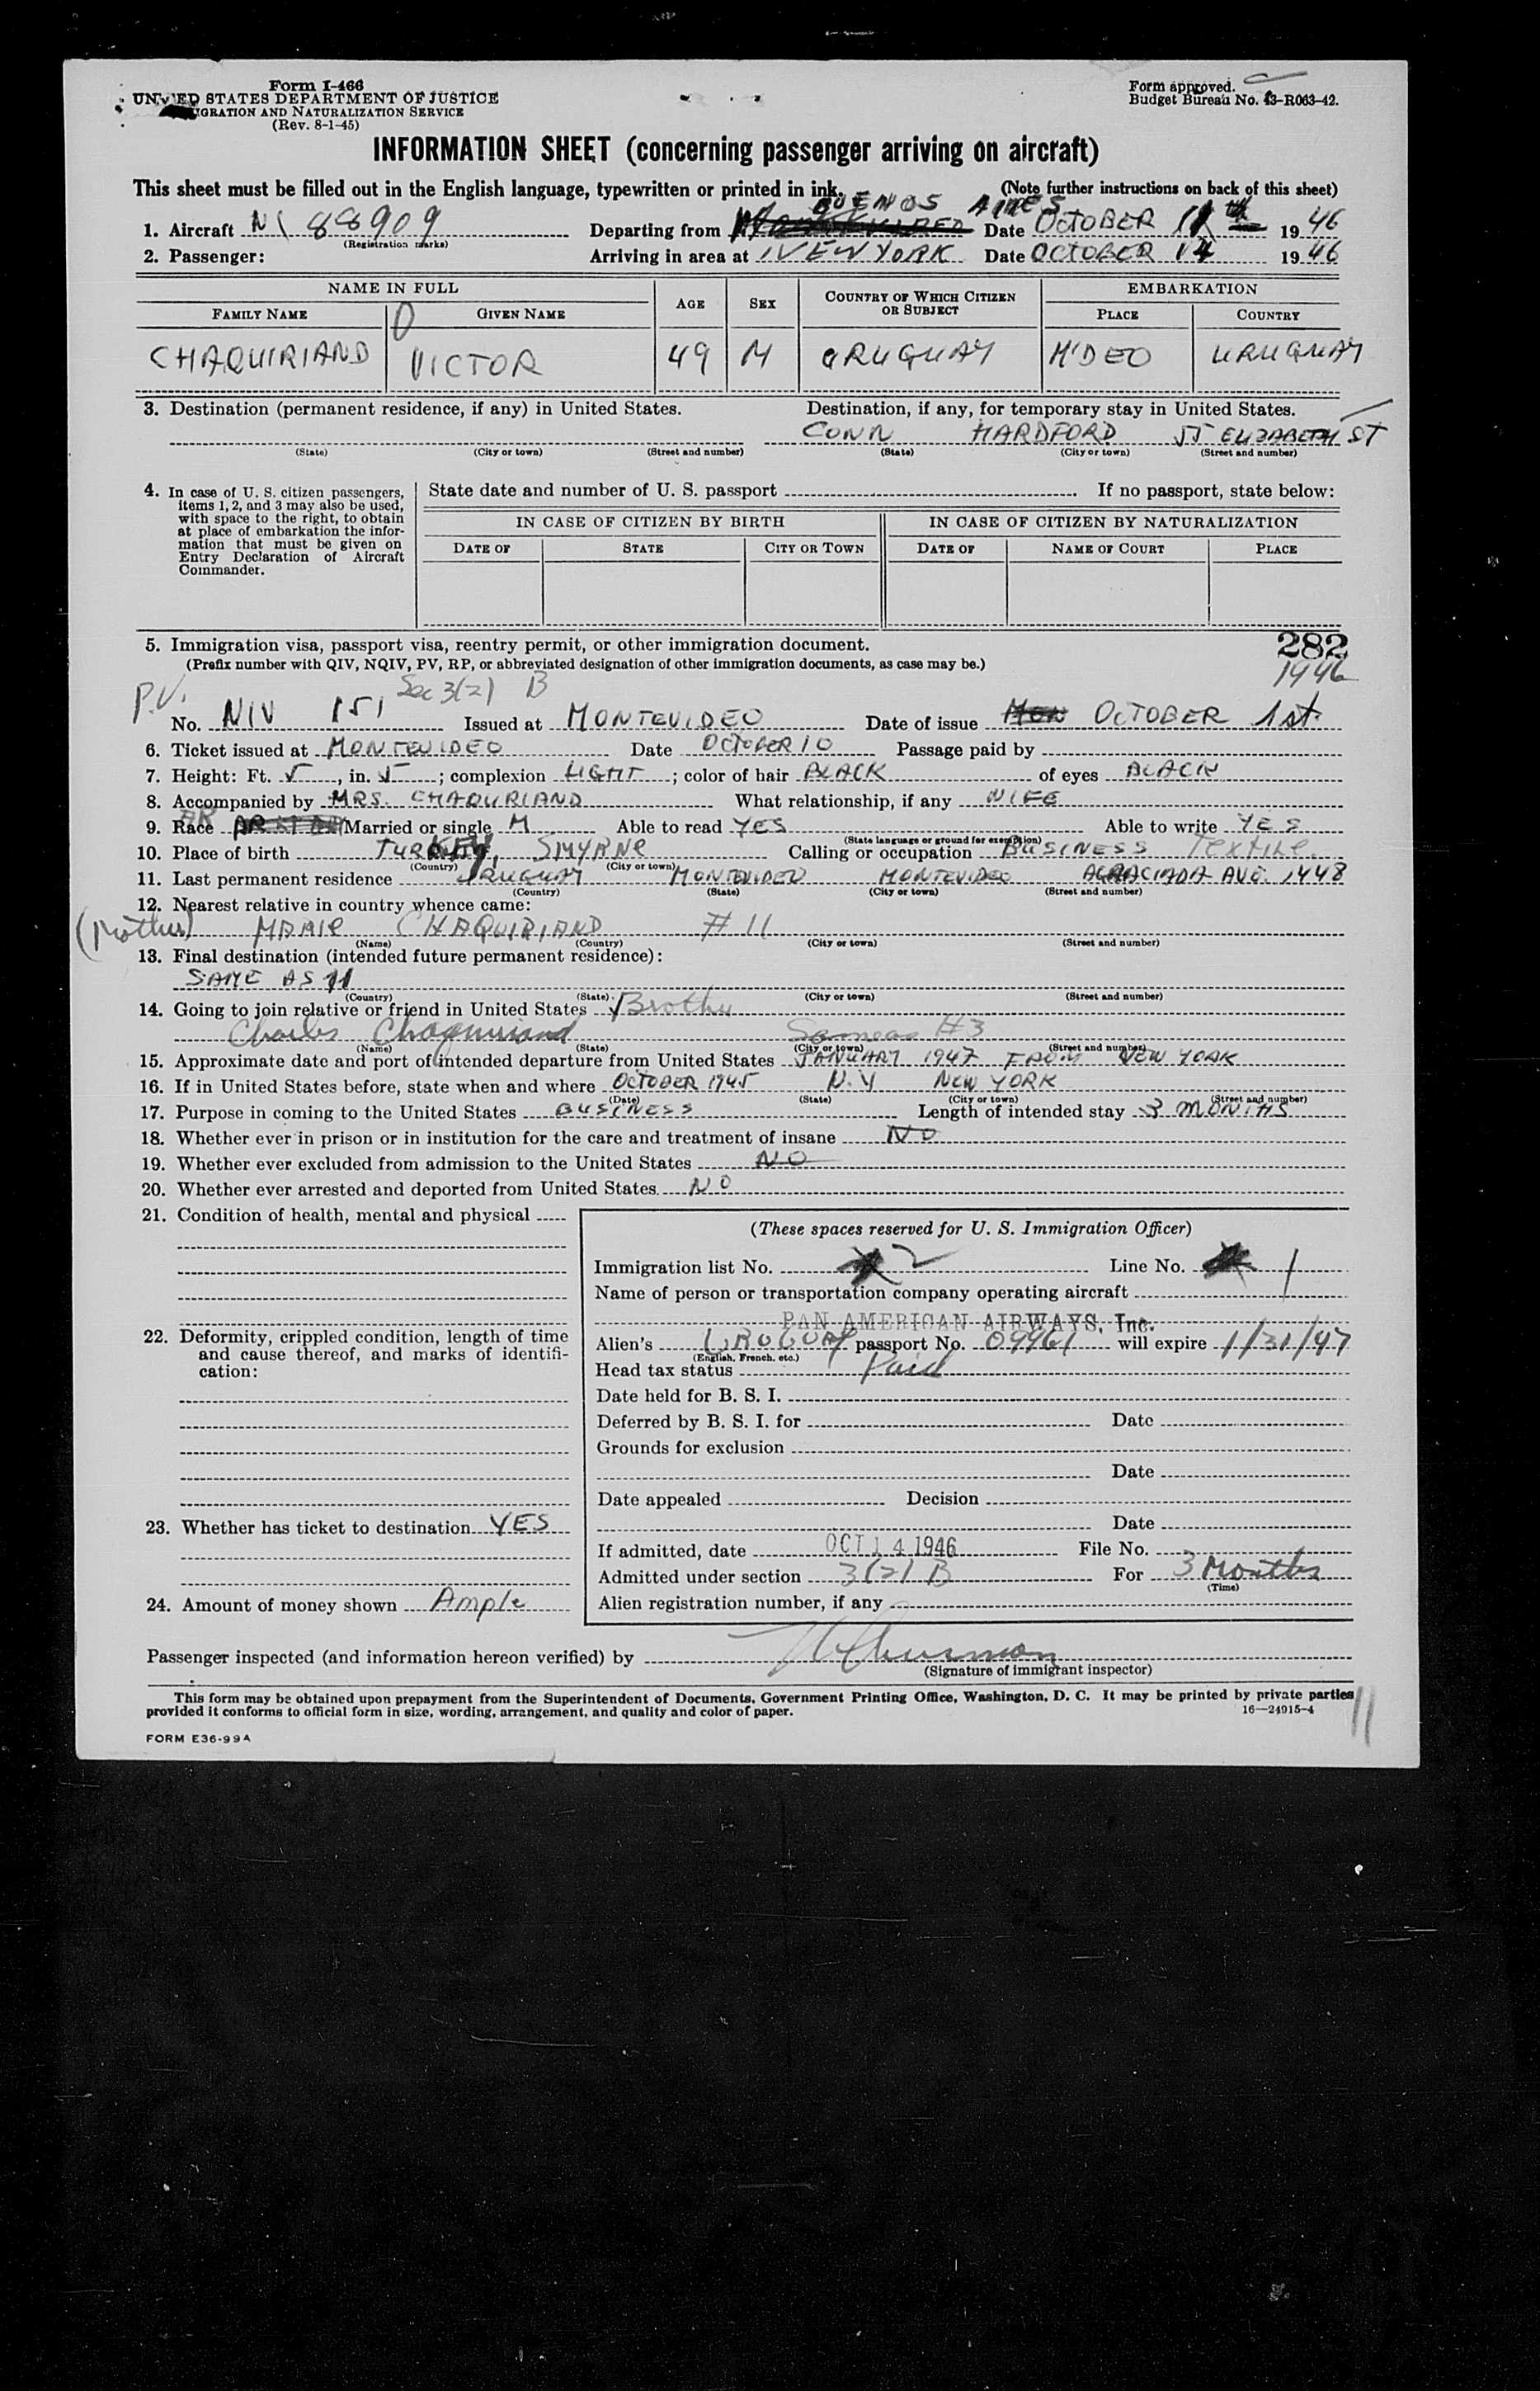 Form I-466
UNITED STATES DEPARTMENT OF JUSTICE
IGRATION AND NATURALIZATION SERVICE
(Rev. 8-1-45)
Form approved.
Budget Bureau No. 43-R063-42.
INFORMATION SHEET (concerning passenger arriving on aircraft)
This sheet must be filled out in the English language, typewritten or printed in ink. (Note further instructions on back of this sheet)
BUENOS AIRES
1. Aircraft N 88909 Departing from Date OCTOBER 11th 1946
(Registration marks)
2. Passenger: Arriving in area at NEW YORK Date OCTOBER 14 1946
NAME IN FULL AGE SEX COUNTRY OF WHICH CITIZEN OR SUBJECT EMBARKATION
FAMILY NAME GIVEN NAME PLACE COUNTRY
CHAQUIRIAND VICTOR 49 M URUGUAY M'DEO URUGUAY
3. Destination (permanent residence, if any) in United States. Destination, if any, for temporary stay in United States.
CONN HARDFORD 55 ELIZABETH ST
(State) (City or town) (Street and number) (State) (City or town) (Street and number)
4. In case of U. S. citizen passengers, items 1, 2, and 3 may also be used, with space to the right, to obtain at place of embarkation the information that must be given on Entry Declaration of Aircraft Commander.
State date and number of U. S. passport If no passport, state below:
IN CASE OF CITIZEN BY BIRTH IN CASE OF CITIZEN BY NATURALIZATION
DATE OF STATE CITY OR TOWN DATE OF NAME OF COURT PLACE
5. Immigration visa, passport visa, reentry permit, or other immigration document. 282
(Prefix number with QIV, NQIV, PV, RP, or abbreviated designation of other immigration documents, as case may be.) 1946
P.V. Sec 3(2) B
No. NIV 151 Issued at MONTEVIDEO Date of issue OCTOBER 1st.
6. Ticket issued at MONTEVIDEO Date OCTOBER 10 Passage paid by
7. Height: Ft. 5, in. 5; complexion LIGHT; color of hair BLACK of eyes BLACK
8. Accompanied by MRS. CHAQURIAND What relationship, if any WIFE
9. Race AR Married or single M Able to read YES Able to write YES
(State language or ground for exemption)
10. Place of birth TURKEY, SMYRNE Calling or occupation BUSINESS Textile
(Country) (City or town)
11. Last permanent residence URUGUAY MONTEVIDEO MONTEVIDEO AGRACIADA AVE. 1448
(Country) (State) (City or town) (Street and number)
12. Nearest relative in country whence came:
(Mother) MARIE CHAQUIRIAND # 11
(Name) (Country) (City or town) (Street and number)
13. Final destination (intended future permanent residence):
SAME AS 11
(Country) (State) (City or town) (Street and number)
14. Going to join relative or friend in United States Brother
Charles Chaquiriand Same as #3
(Name) (State) (City or town) (Street and number)
15. Approximate date and port of intended departure from United States JANUARY 1947 FROM NEW YORK
16. If in United States before, state when and where OCTOBER 1945 N.Y NEW YORK
(Date) (State) (City or town) (Street and number)
17. Purpose in coming to the United States BUSINESS Length of intended stay 3 MONTHS
18. Whether ever in prison or in institution for the care and treatment of insane NO
19. Whether ever excluded from admission to the United States NO
20. Whether ever arrested and deported from United States. NO
21. Condition of health, mental and physical
22. Deformity, crippled condition, length of time and cause thereof, and marks of identification:
23. Whether has ticket to destination YES
24. Amount of money shown Ample
(These spaces reserved for U. S. Immigration Officer)
Immigration list No. 2 Line No. 1
Name of person or transportation company operating aircraft
PAN AMERICAN AIRWAYS, Inc.
Alien's URUGUAY passport No. 09961 will expire 1/31/47
(English, French, etc.)
Head tax status Paid
Date held for B. S. I.
Deferred by B. S. I. for Date
Grounds for exclusion
Date
Date appealed Decision
Date
If admitted, date OCT 14 1946 File No.
Admitted under section 3(2) B For 3 Months
(Time)
Alien registration number, if any
Passenger inspected (and information hereon verified) by
(Signature of immigrant inspector)
This form may be obtained upon prepayment from the Superintendent of Documents, Government Printing Office, Washington, D. C. It may be printed by private parties
provided it conforms to official form in size, wording, arrangement, and quality and color of paper. 16—24915-4
FORM E36-99A
11